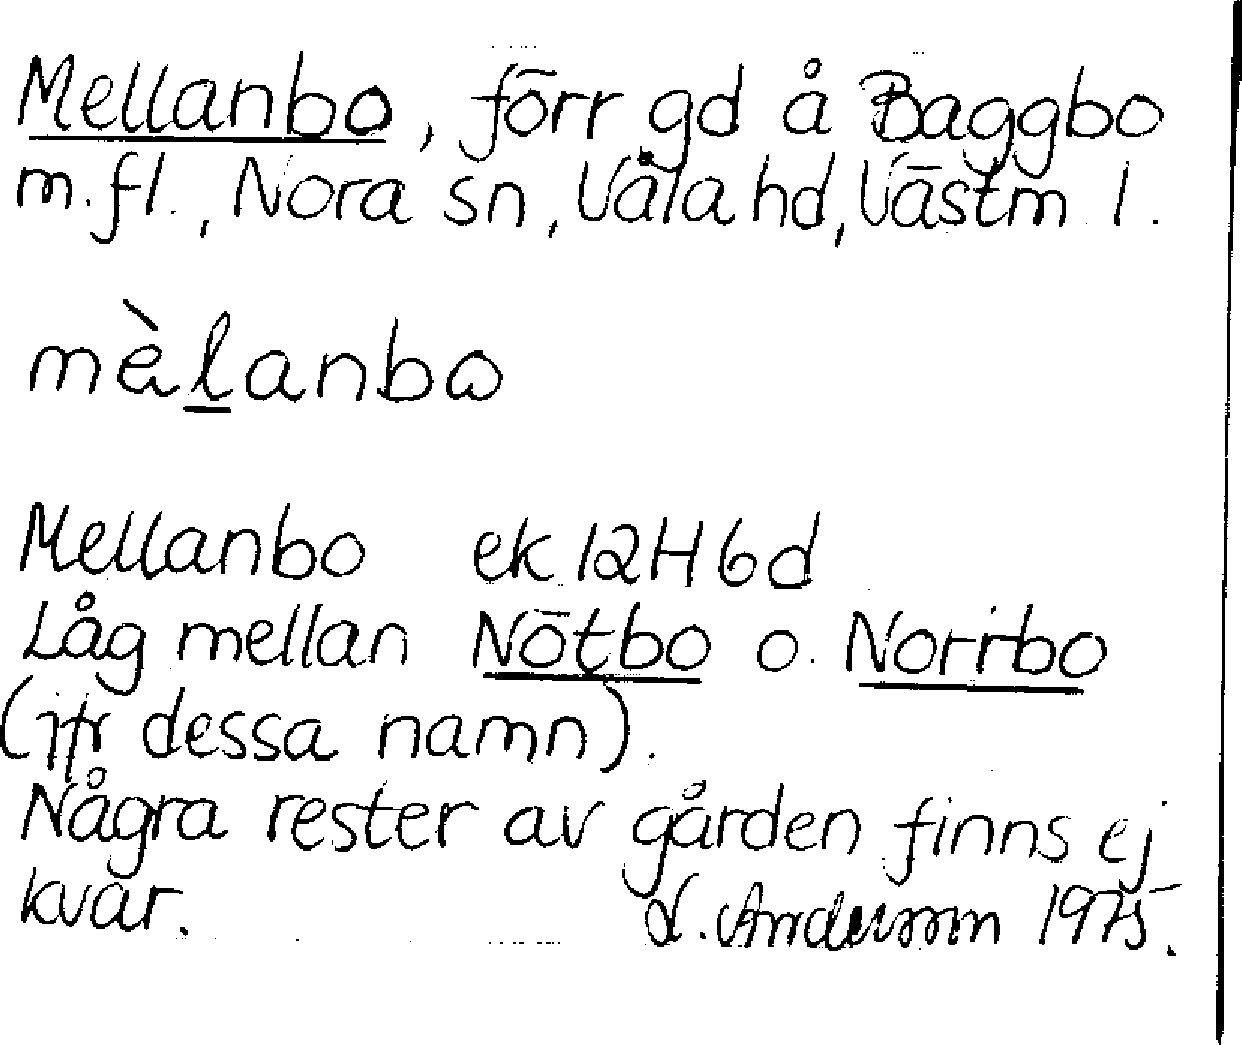 Mellanbo, förr gd å Baggbo
m.fl., Nora sn, Våla hd, Västm l.
mèlanbo
Mellanbo ek 12H6d
Låg mellan Nötbo o. Norrbo
(jfr dessa namn).
Några rester av gården finns ej
kvar. L. Andersson 1975.